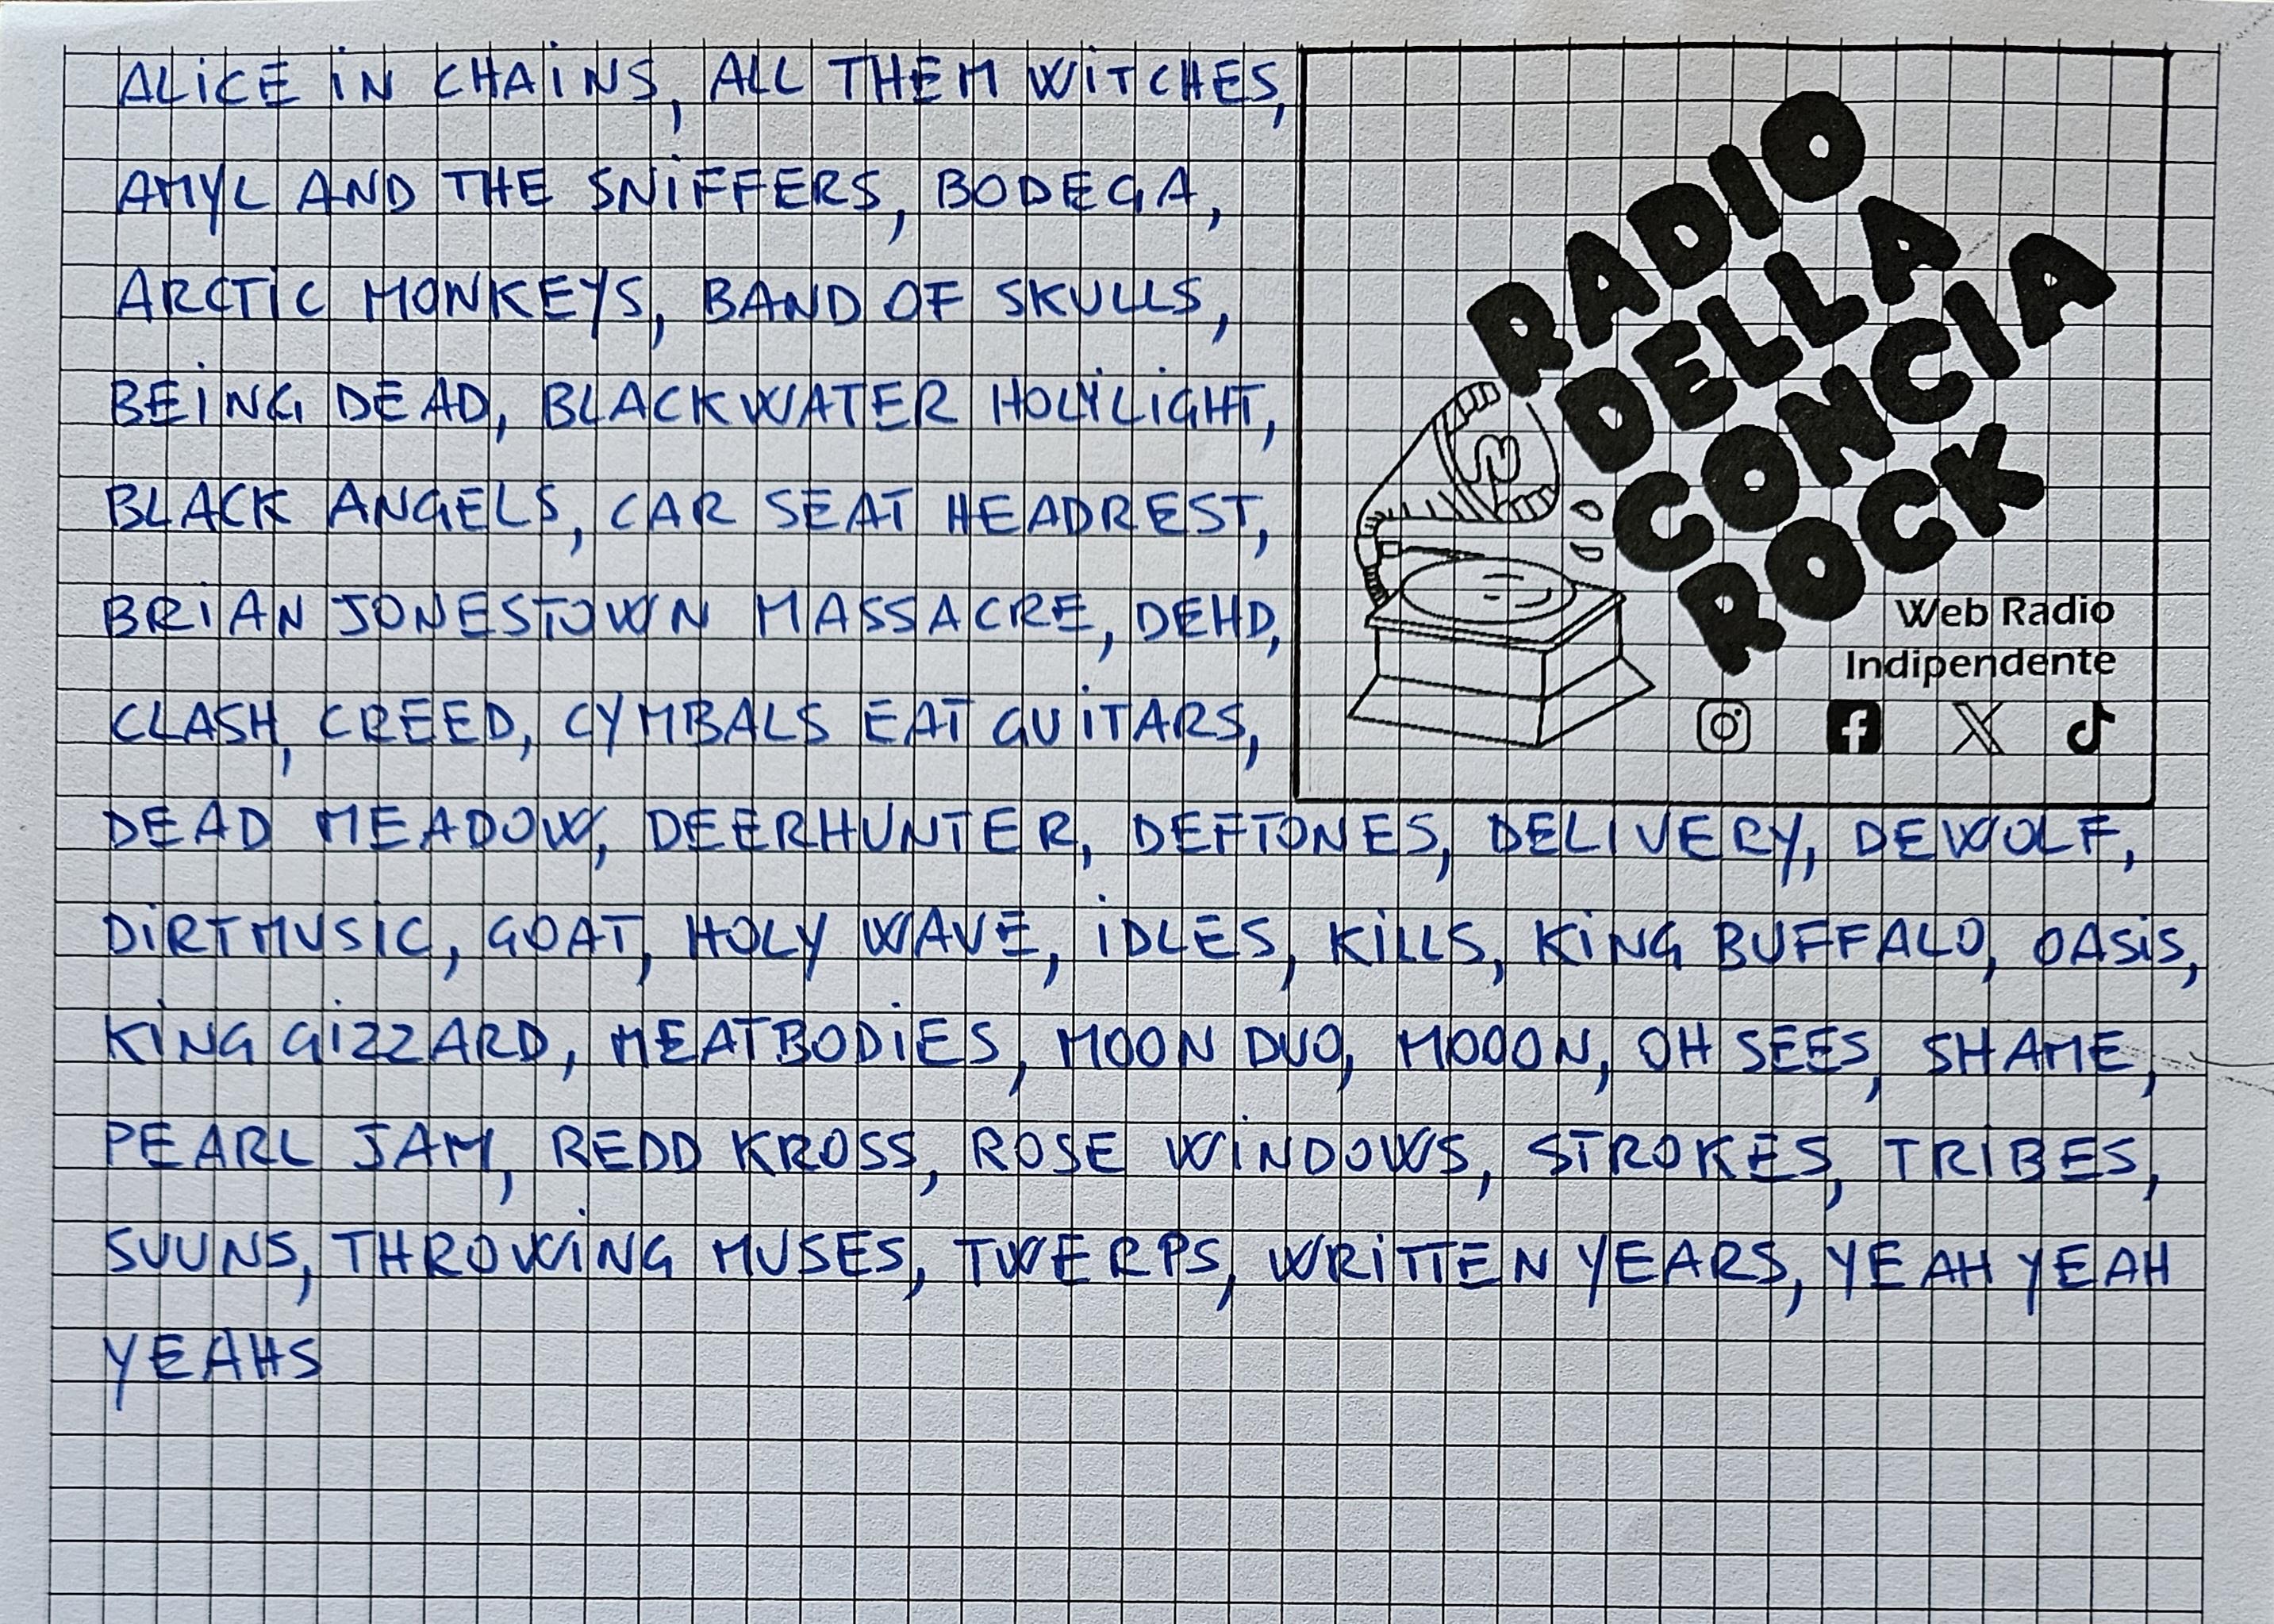 ALICE IN CHAINS, ALL THEM WITCHES,
AMYL AND THE SNIFFERS, BODEGA,
ARCTIC MONKEYS, BAND OF SKULLS,
BEING DEAD, BLACKWATER HOLYLIGHT,
BLACK ANGELS, CAR SEAT HEADREST,
BRIAN JONESTOWN MASSACRE, DEHD,
CLASH, CREED, CYMBALS EAT GUITARS,
DEAD MEADOW, DEERHUNTER, DEFTONES, DELIVERY, DEWOLF,
DIRTMUSIC, GOAT, HOLY WAVE, IDLES, KILLS, KING BUFFALO, OASIS,
KING GIZZARD, MEATBODIES, MOON DUO, MOOON, OH SEES, SHAME,
PEARL JAM, REDD KROSS, ROSE WINDOWS, STROKES, TRIBES,
SUUNS, THROWING MUSES, TWERPS, WRITTEN YEARS, YEAH YEAH
YEAHS
RADIO
DELLA
CONCIA
ROCK
Web Radio
Indipendente